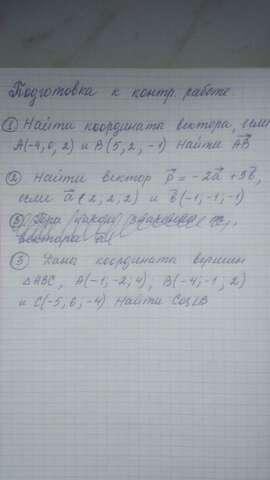 Подготовка к контр. работе
① Найти координата вектора, если
A(-4, 0, 2) и B(5, 2, -1) Найти AB
② Найти вектор p = -2a + 3b,
если a (2, 2, 2) и b(-1, -1, -1)
вектора
③ Даны координата вершин
△ABC, A(-1, -2, 4), B(-4, -1, 2)
и C(-5, 6, -4) Найти Cos∠B